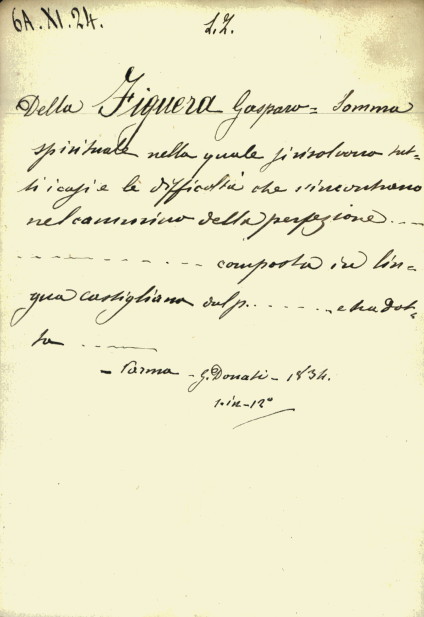 6A.XI.24.
Della Figuera Gasparo = Somma
spirituale nella quale si risolvono tut-
ti i casi e le difficoltà che s'incontrano
nel cammino della perfezione....
............ composta in lin-
gua castigliana dal p....... e tradot-
ta ......
- Parma - G. Donati - 1834.
1. in - 12°